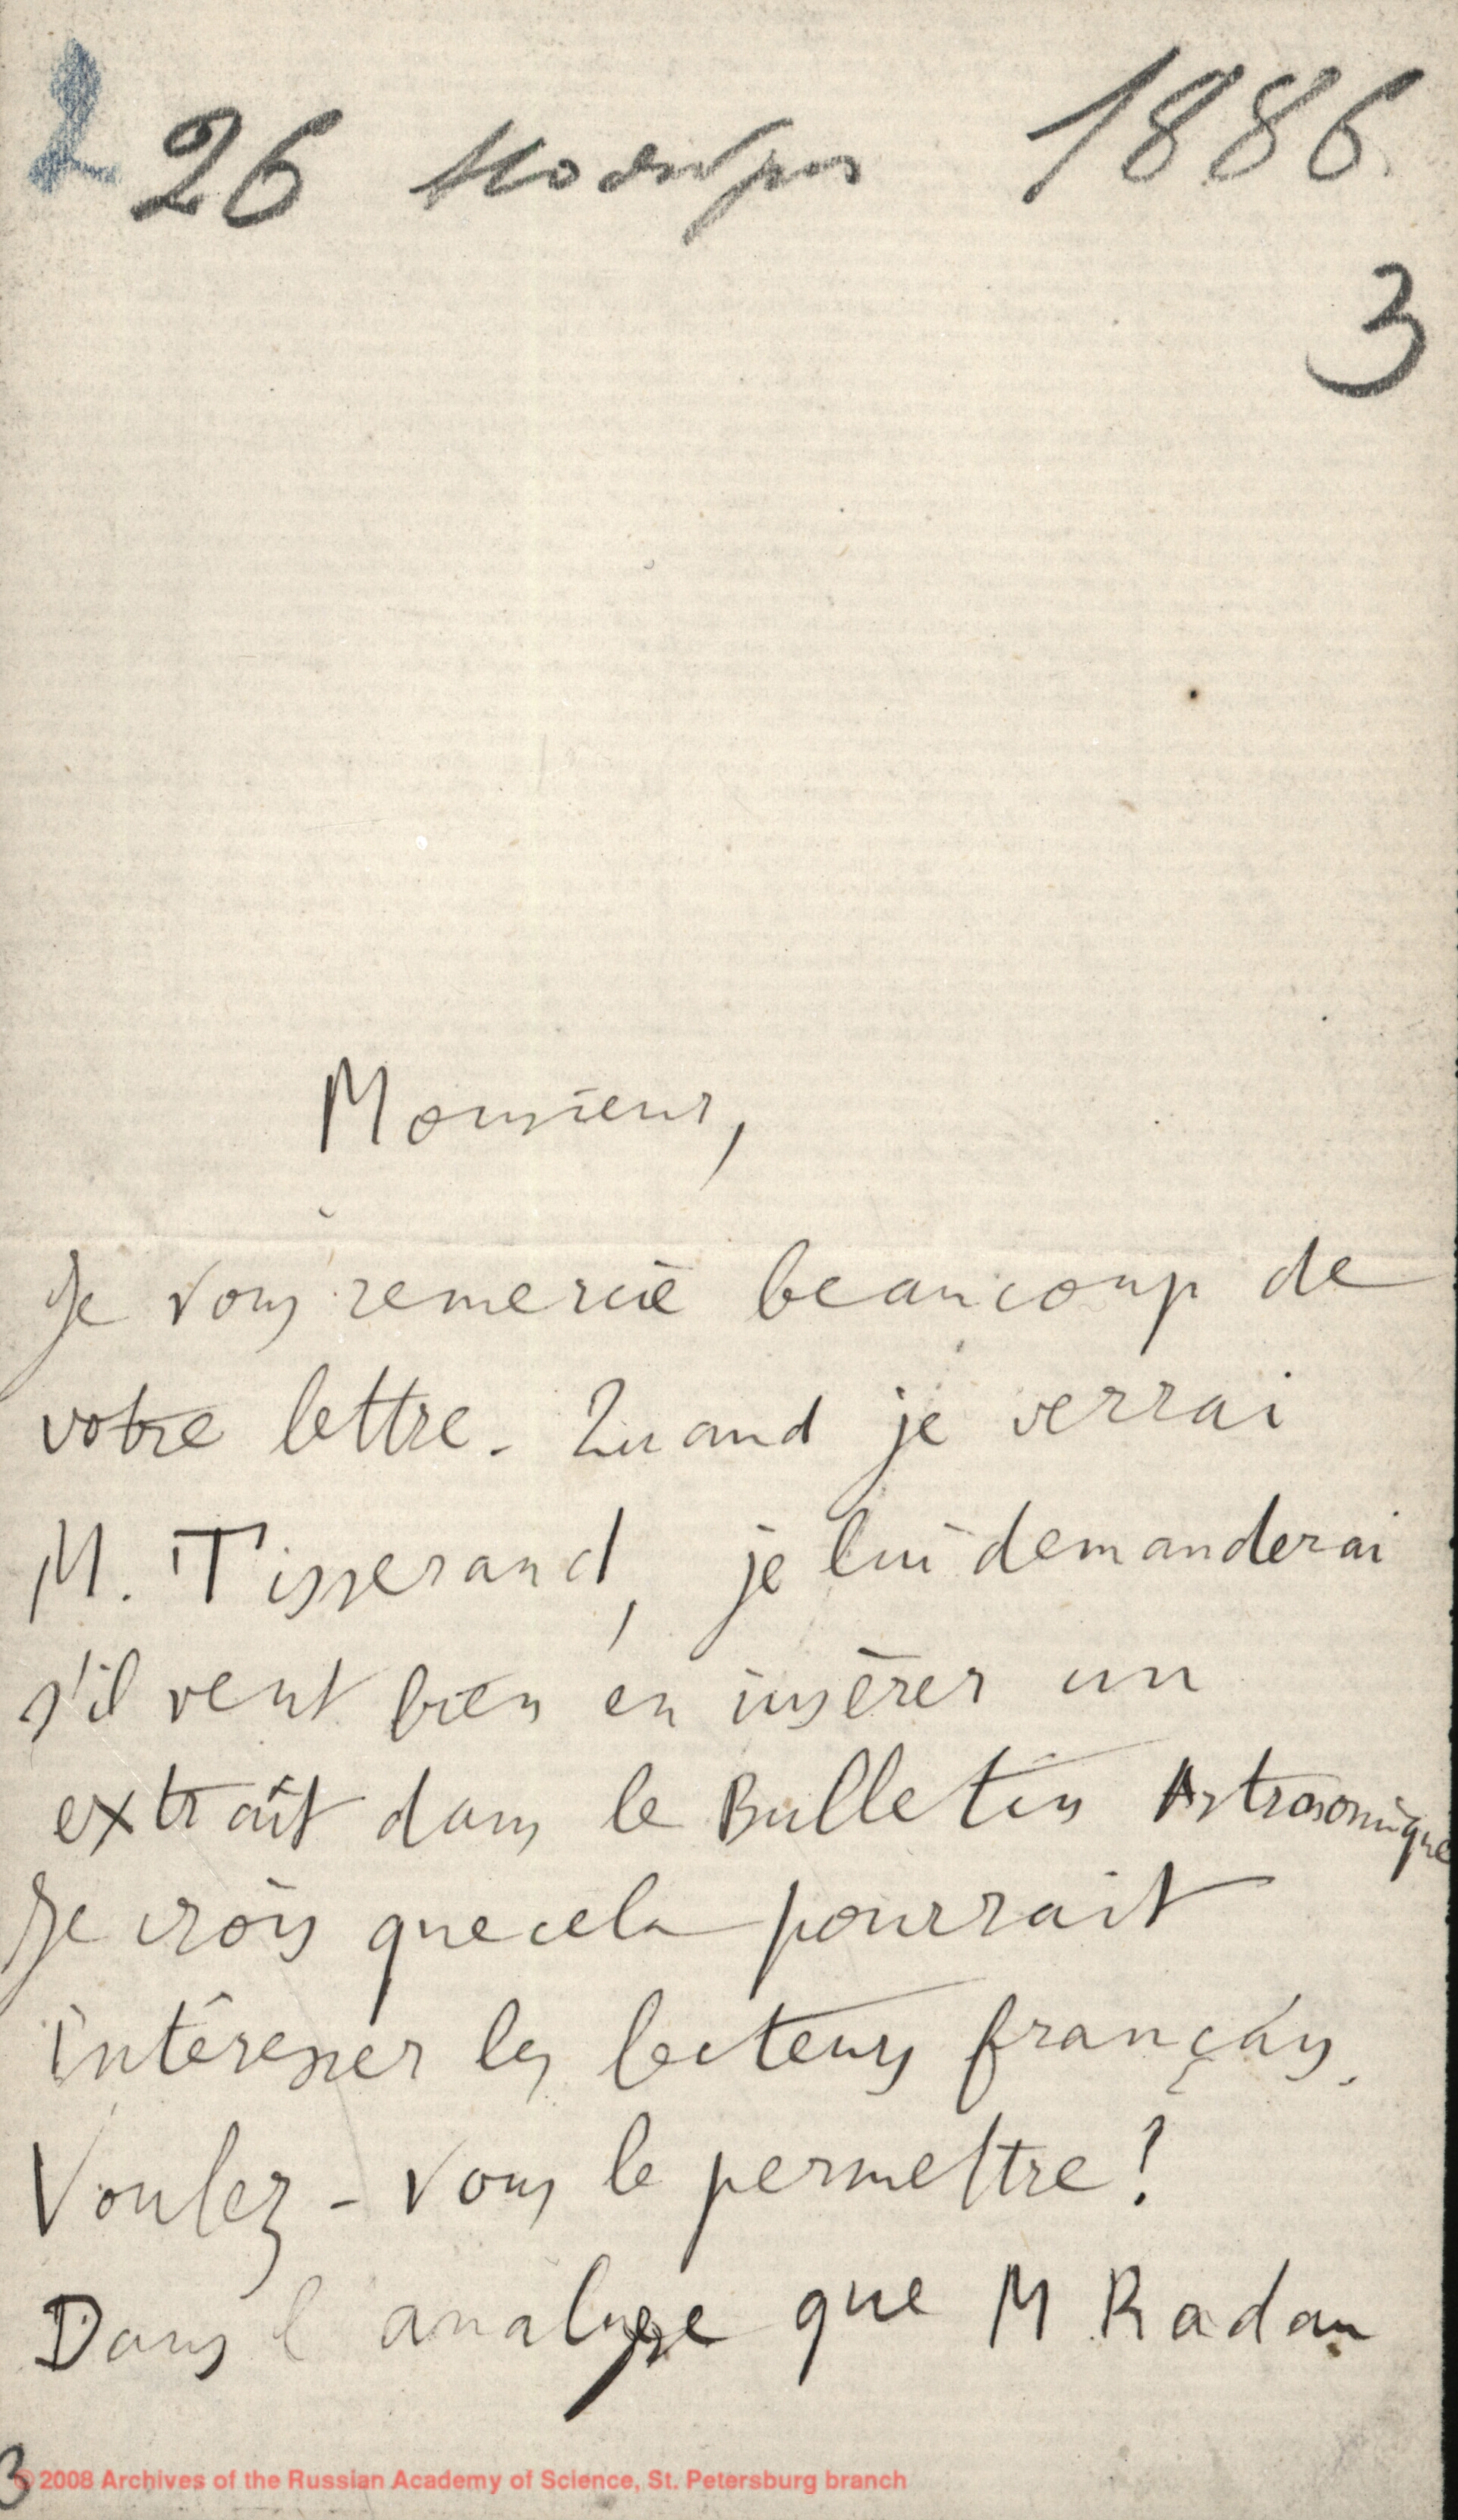 2
26 Ноября 1886.
3
Monsieur,
Je vous remercie beaucoup de
votre lettre. Quand je verrai
M. Tisserand, je lui demanderai
s'il veut bien en insérer un
extrait dans le Bulletin Astronomique
Je crois que cela pourrait
intéresser les lecteurs français.
Voulez-vous le permettre?
Dans l'analyse que M Radau
3
© 2008 Archives of the Russian Academy of Science, St. Petersburg branch